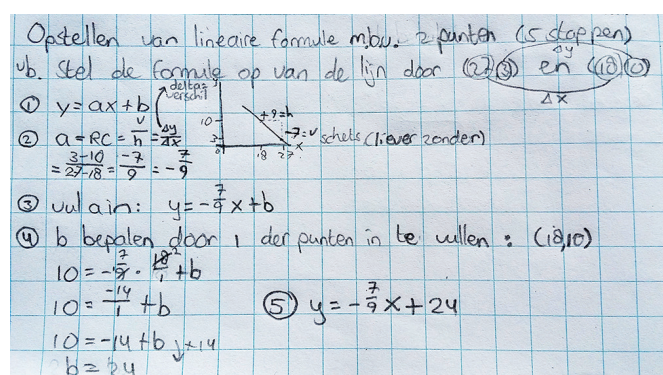 Opstellen van lineaire formule m.b.v. 2 punten (5 stappen)
vb. Stel de formule op van de lijn door (27,3) en (18,10)
Δy
Δx
① y=ax+b
delta= verschil
② a=RC=v/h=Δy/Δx
=3-10/27-18=-7/9=-7/9
y
10
3
0
18
27
x
+9=h
-7=v
schets (liever zonder)
③ vul a in: y=-7/9x+b
④ b bepalen door 1 der punten in te vullen: (18,10)
10=-7/9·18/1+b
2
10=-14/1+b
10=-14+b
+14
b=24
⑤ y=-7/9x+24